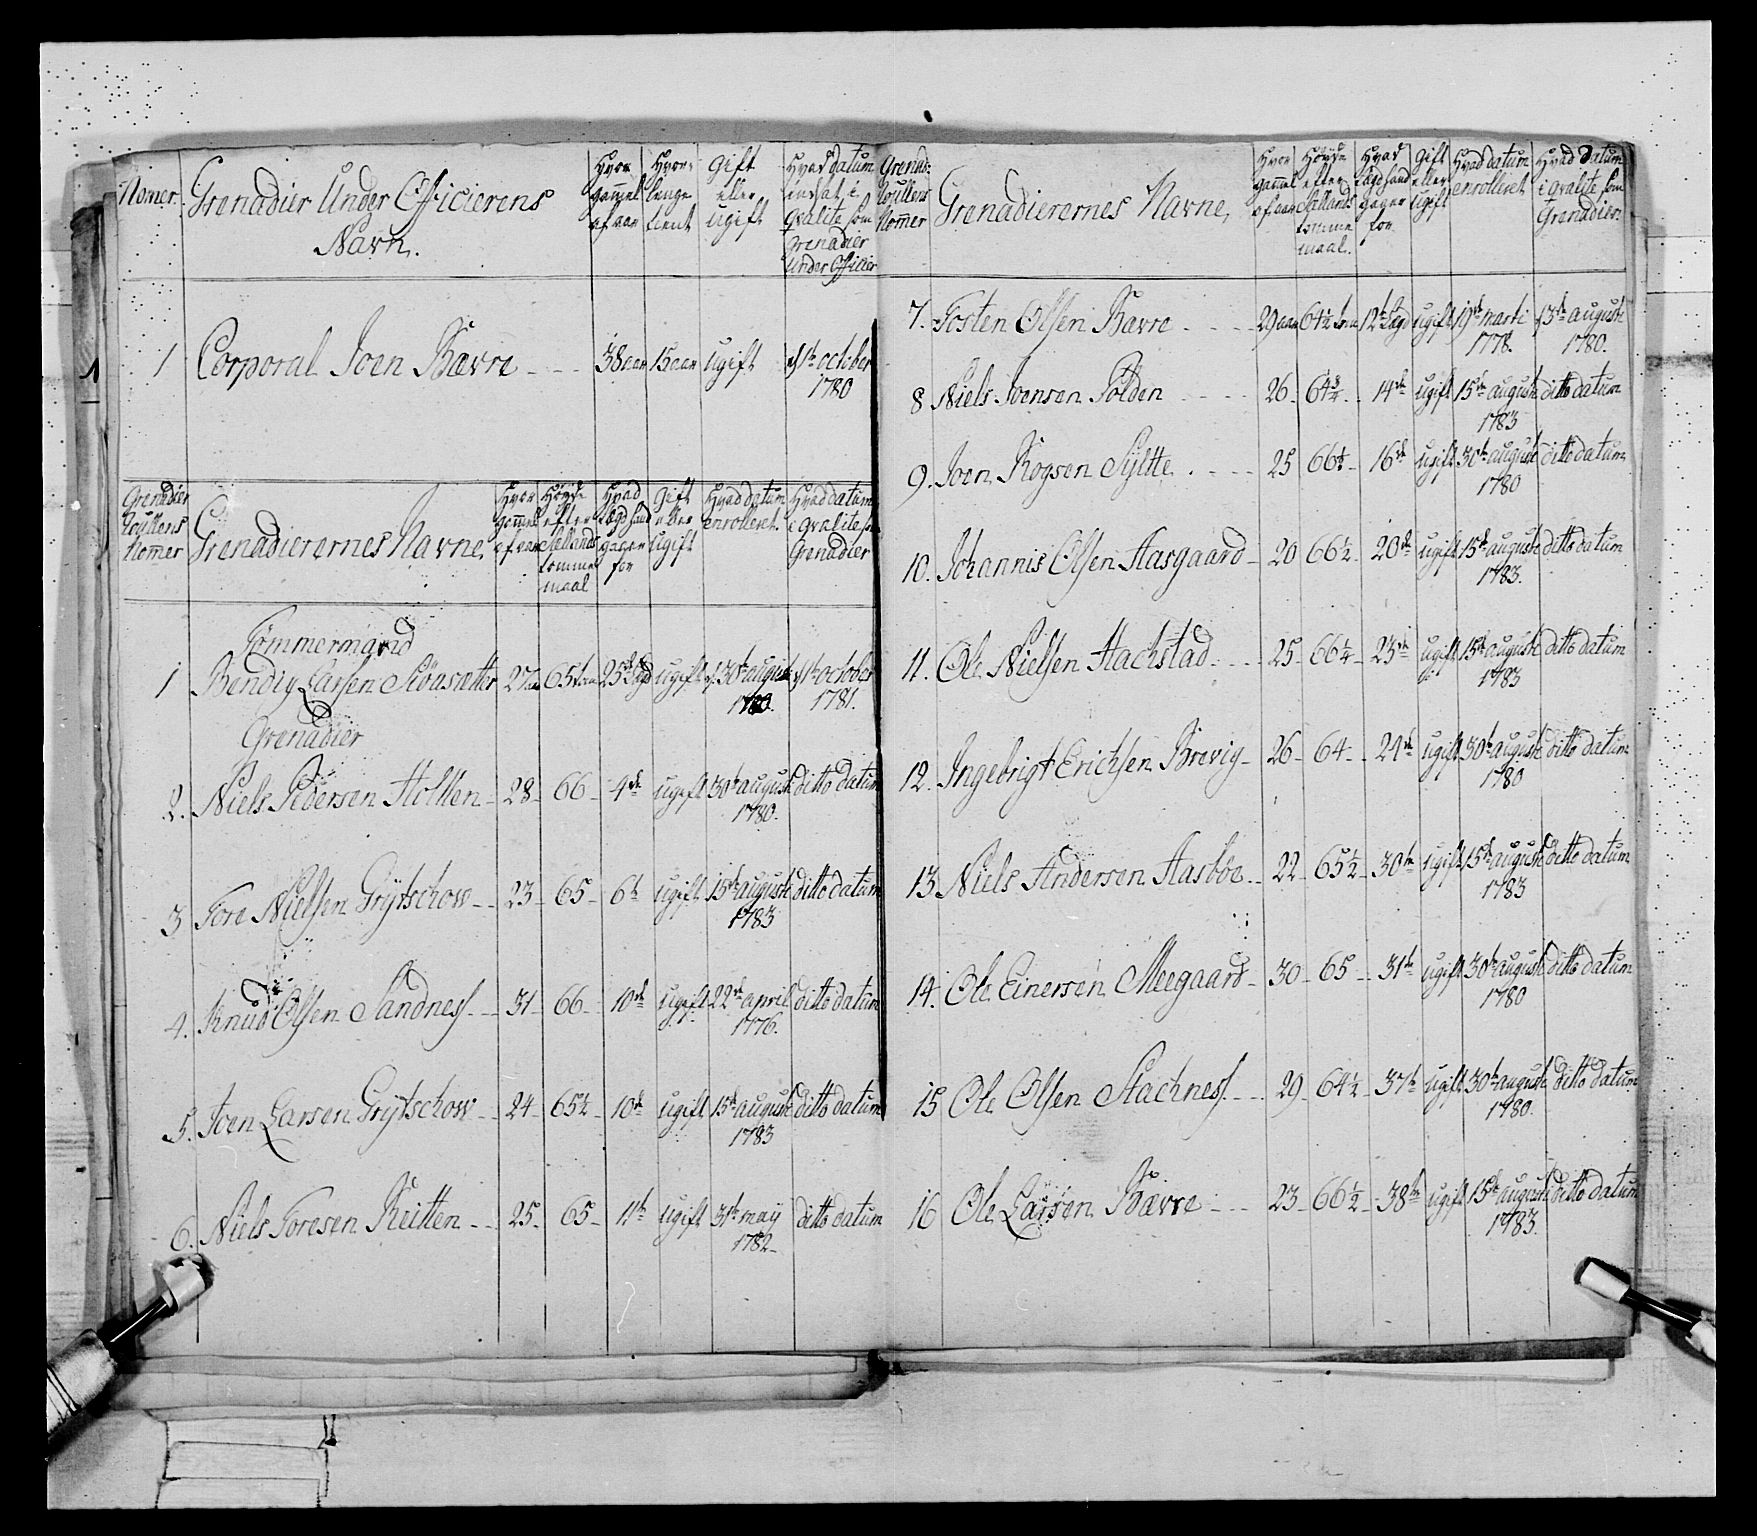 Nomer. Grenadier Under Officierens Navn. Hvor gammel af aar Hvor lenge tient Gift eller ugift Hvad datum indsat i qvalite som Grenadier Under Officier
1 Corporal Joen Bævre 38 aar 15 aar ugift 1te october 1780
Grenadier Roullens Nomer Grenadierernes Navne Hvor gammel af aar Høyde efter Siellands tomme maal Hvad Lægd hand gager for Gift eller ugift Hvad datum enrolleret. Hvad datum i qvalite som Grenadier
Tømmermand
1 Bendig Larsen 27 65 25de Lægd ugift 30te august 1780. 1te october 1781.
Grenadier
2. Niels Pedersen Holten 28 66 4de ugift 30te auguste 1780. ditto datum
3 Tore Nielsen Grytschow 23 65 6te ugift 15de auguste 1783 ditto datum
4. Knud Olsen Sandnes 31 66 10de ugift 22de april 1776. ditto datum
5. Joen Larsen Grytschow 24 65½ 10de ugift 15de auguste 1783 ditto datum
6. Niels Toresen Reitten 25 65 11te ugift 31te may 1782 ditto datum
Grenad: Roullens Nomer Grenadierernes Navne, Hvor gammel af aar Høyde efter Siellands tomme maal. Hvad Lægd hand gager for Gift eller ugift Hvad datum enrolleret Hvad datum i qvalite som Grenadier.
7. Tosten Olsen Bævre 29 aar 64½ tom 12te Lægd ugift 19de marti 1778. 13de auguste 1780.
8 Niels Joensen Polden 26 64¾ 14de ugift 15de auguste 1783 ditto datum
9. Joen Sylte 25 66½ 16de ugift 30te auguste 1780 ditto datum
10. Johannis Olsen Aasgaard 20 66½ 20de ugift 15de auguste 1783. ditto datum
11. Ole Nielsen Hachstad 25 66¼ 23de ugift 15de auguste 1783 ditto datum
12. Ingebrigt Erichsen Brevig 26 64 24de ugift 30te auguste 1780 ditto datum
13 Niels Andersen Aasbøe 22 65½ 30te ugift 15de auguste 1783 ditto datum
14. Ole Einersen Meegaard 30 65 31te ugift 30te auguste 1780 ditto datum
15 Ole Olsen Stachnes 29 64½ 37te ugift 30te auguste 1780. ditto datum
16 Ole Larsen Bævre 23 66½ 38te ugift 15de auguste 1783. ditto datum